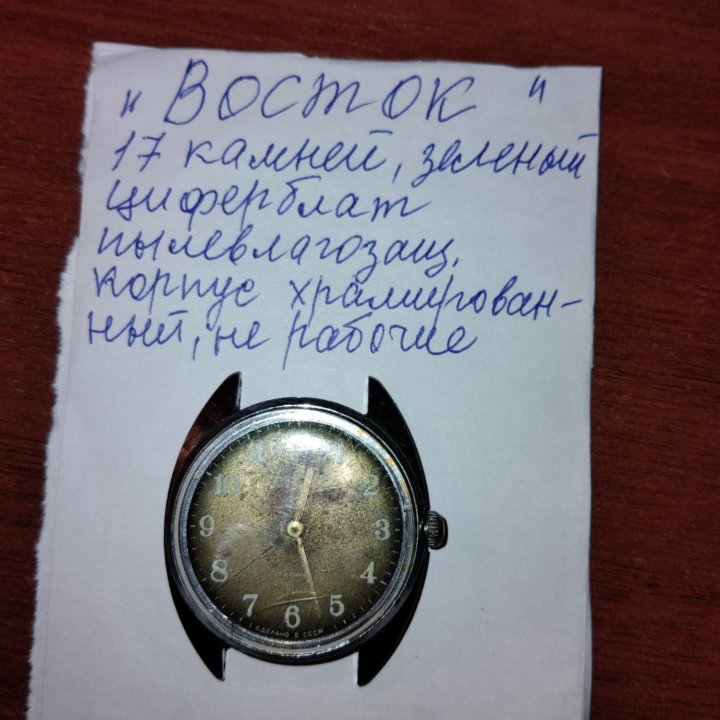 "ВОСТОК"
17 камней, зеленый
циферблат
пылевлагозащ.
корпус храмирован-
ный, не рабочие
10 2
9 3
8 4
7 6 5
СДЕЛАНО В СССР